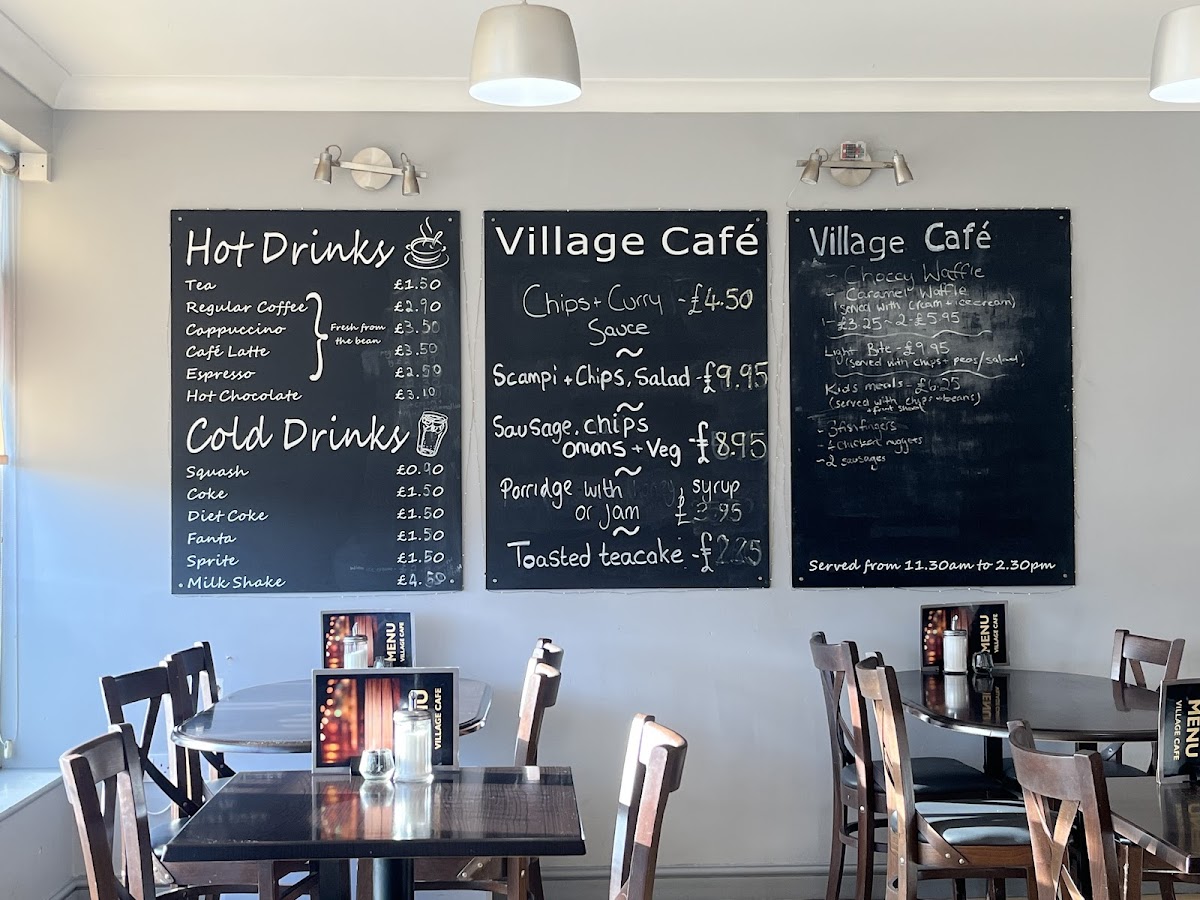 Hot Drinks
Tea £1.50
Regular Coffee £2.90
Cappuccino £3.50
Fresh from
the bean
Café Latte £3.50
Espresso £2.50
Hot Chocolate £3.10
Cold Drinks
Squash £0.90
Coke £1.50
Diet Coke £1.50
Fanta £1.50
Sprite £1.50
Milk Shake £4.50
Village Café
Chips + Curry - £4.50
Sauce
~
Scampi + Chips, Salad - £9.95
~
Sausage, chips
onions + Veg - £8.95
~
Porridge with , syrup
or jam £3.95
~
Toasted teacake - £2.25
Village Café
- Choccy Waffle
- Caramel Waffle
(served with cream + icecream)
1 - £3.25 ~ 2 - £5.95
Light Bite - £9.95
(served with chips + peas/salad)
Kids meals - £6.25
(served with chips + beans)
+ fruit shoot
- 3 fishfingers
- chicken nuggets
- 2 sausages
Served from 11.30am to 2.30pm
MENU
VILLAGE CAFE
MENU
VILLAGE CAFE
MENU
VILLAGE CAFE
MENU
VILLAGE CAFE